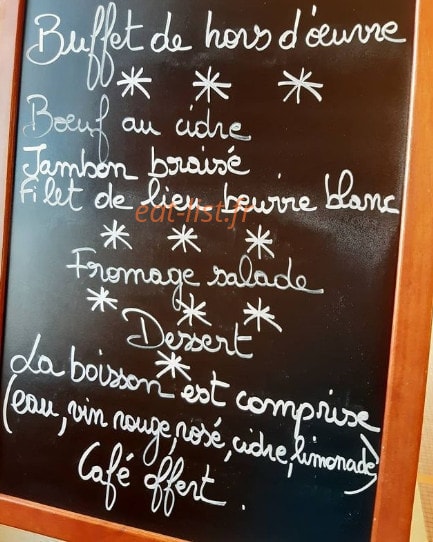 Buffet de hors d'œuvre
* * *
Bœuf au cidre
Jambon braisé
Filet de lieu beurre blanc
eat-list.fr
* * *
Fromage salade
* * *
Dessert
*
La boisson est comprise
(eau, vin rouge, rosé, cidre, limonade)
Café offert.